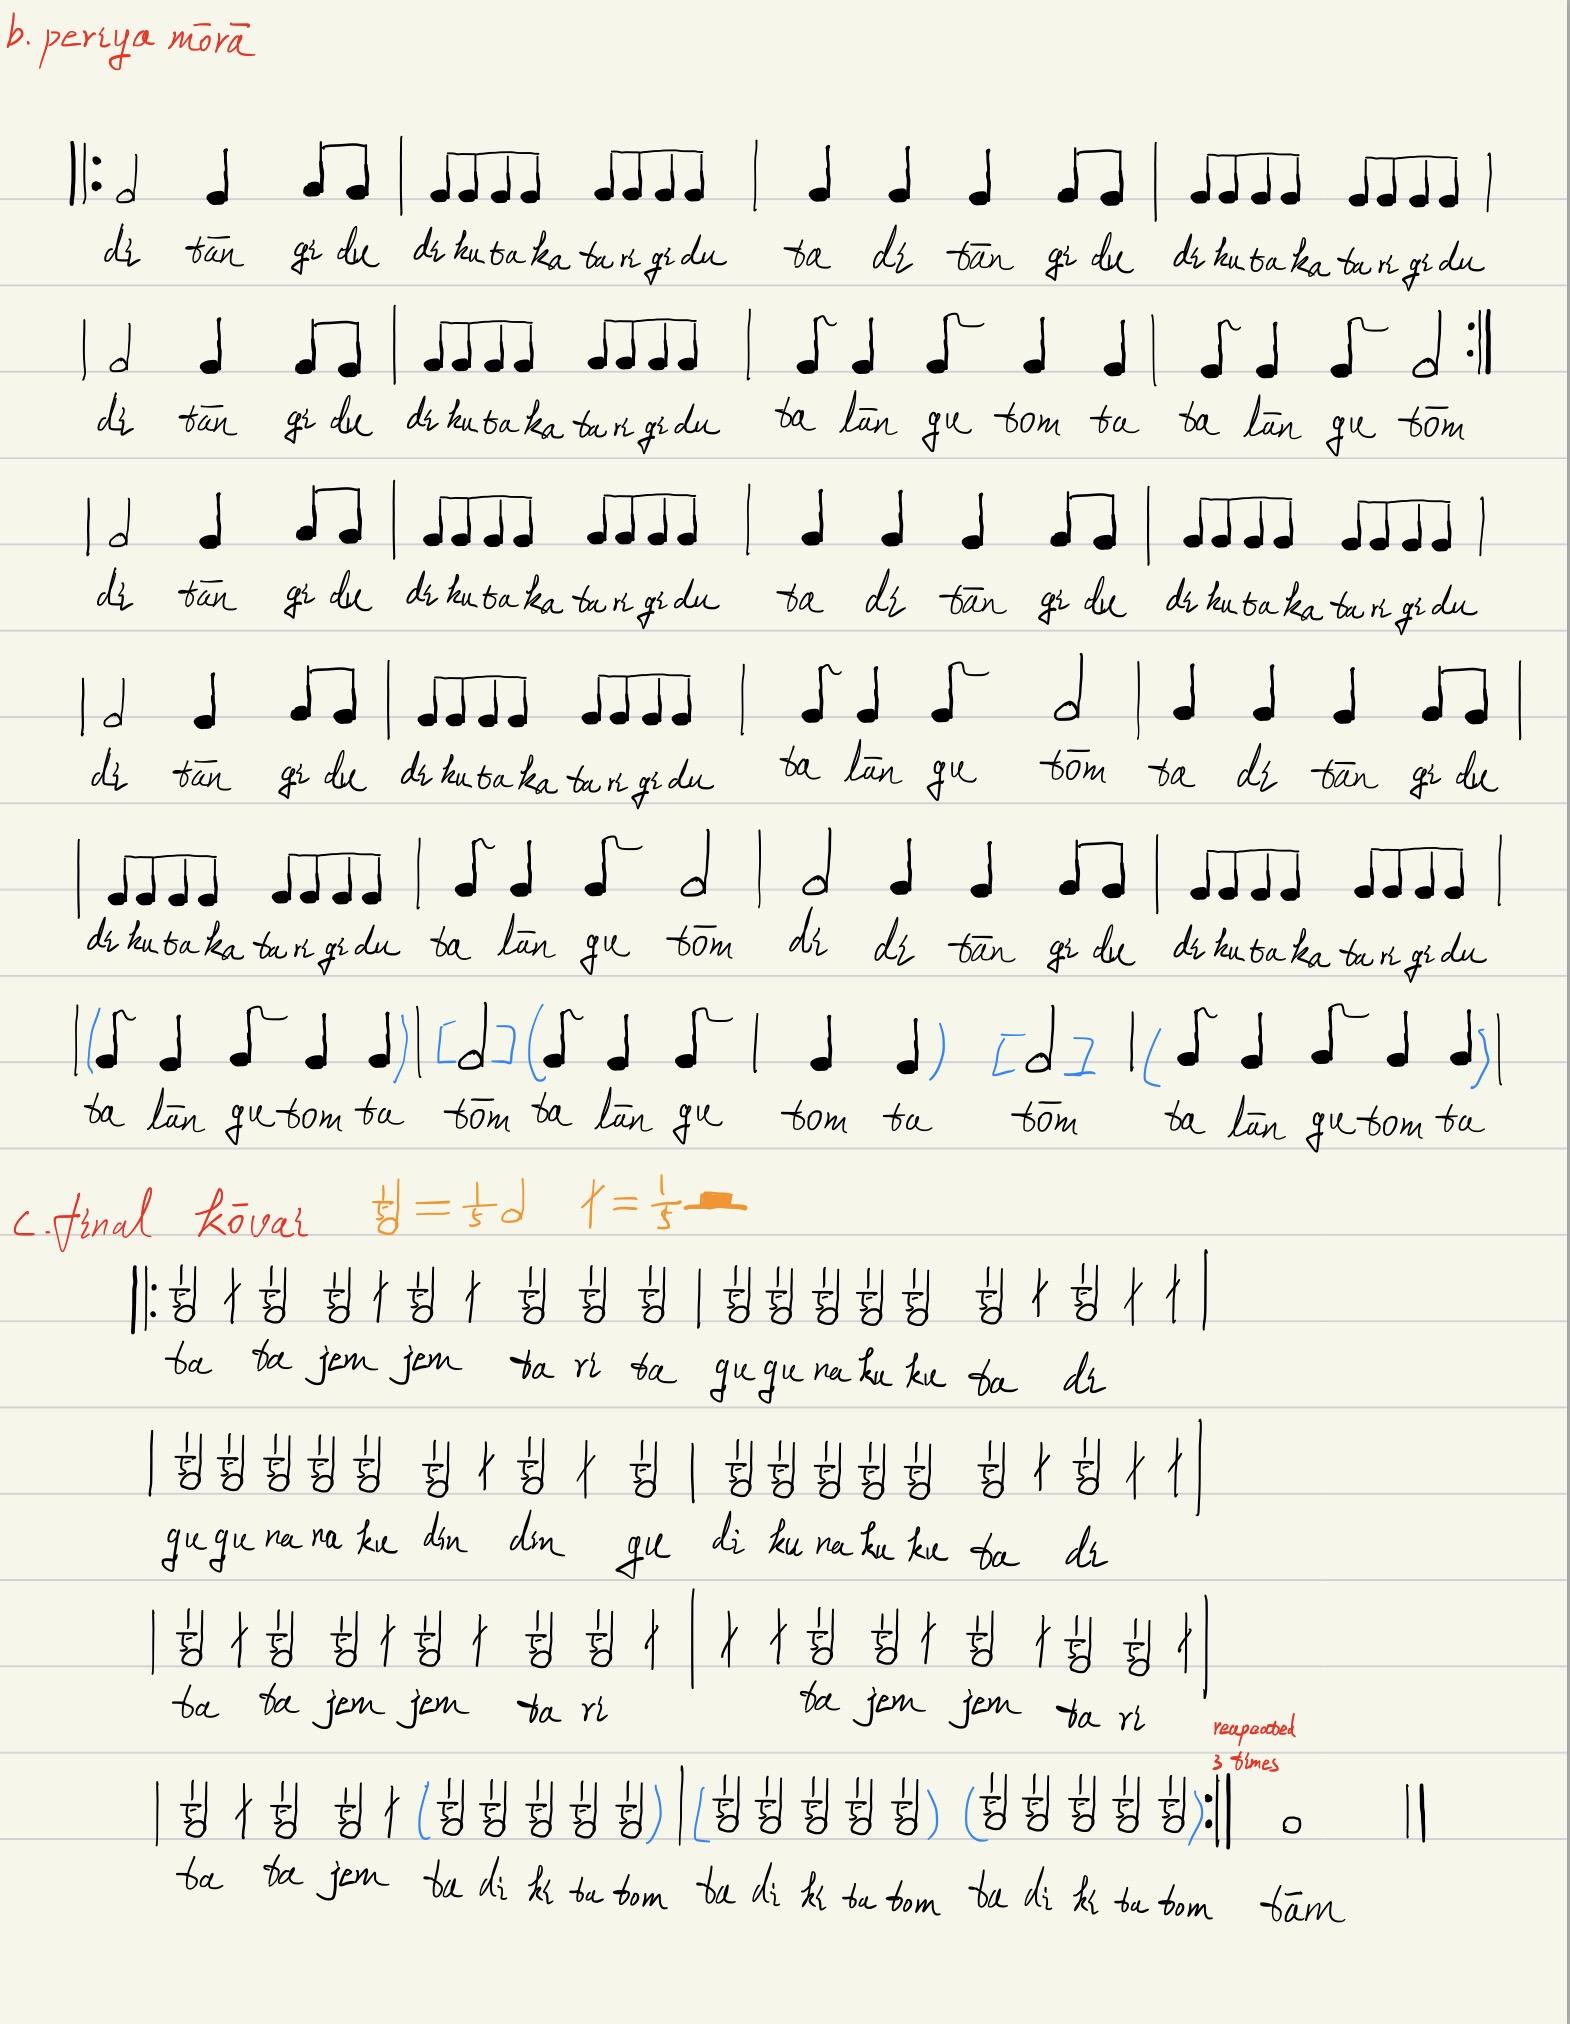 b. periya mōrā
di tān gi du di ku ta ka ta ri gi du ta di tān gi du di ku ta ka ta ri gi du
di tān gi du di ku ta ka ta ri gi du ta lān gu tom ta ta lān gu tōm
di tān gi du di ku ta ka ta ri gi du ta di tān gi du di ku ta ka ta ri gi du
di tān gi du di ku ta ka ta ri gi du ta lān gu tōm ta di tān gi du
di ku ta ka ta ri gi du ta lān gu tōm di di tān gi du di ku ta ka ta ri gi du
ta lān gu tom ta tōm ta lān gu tom ta tōm ta lān gu tom ta
c. final kōvai
ta ta jem jem ta ri ta gu gu na ku ku ta di
gu gu na na ku din din gu di ku na ku ku ta di
ta ta jem jem ta ri ta jem jem ta ri
reapeated
3 times
ta ta jem ta di ki ta tom ta di ki ta tom ta di ki ta tom tām